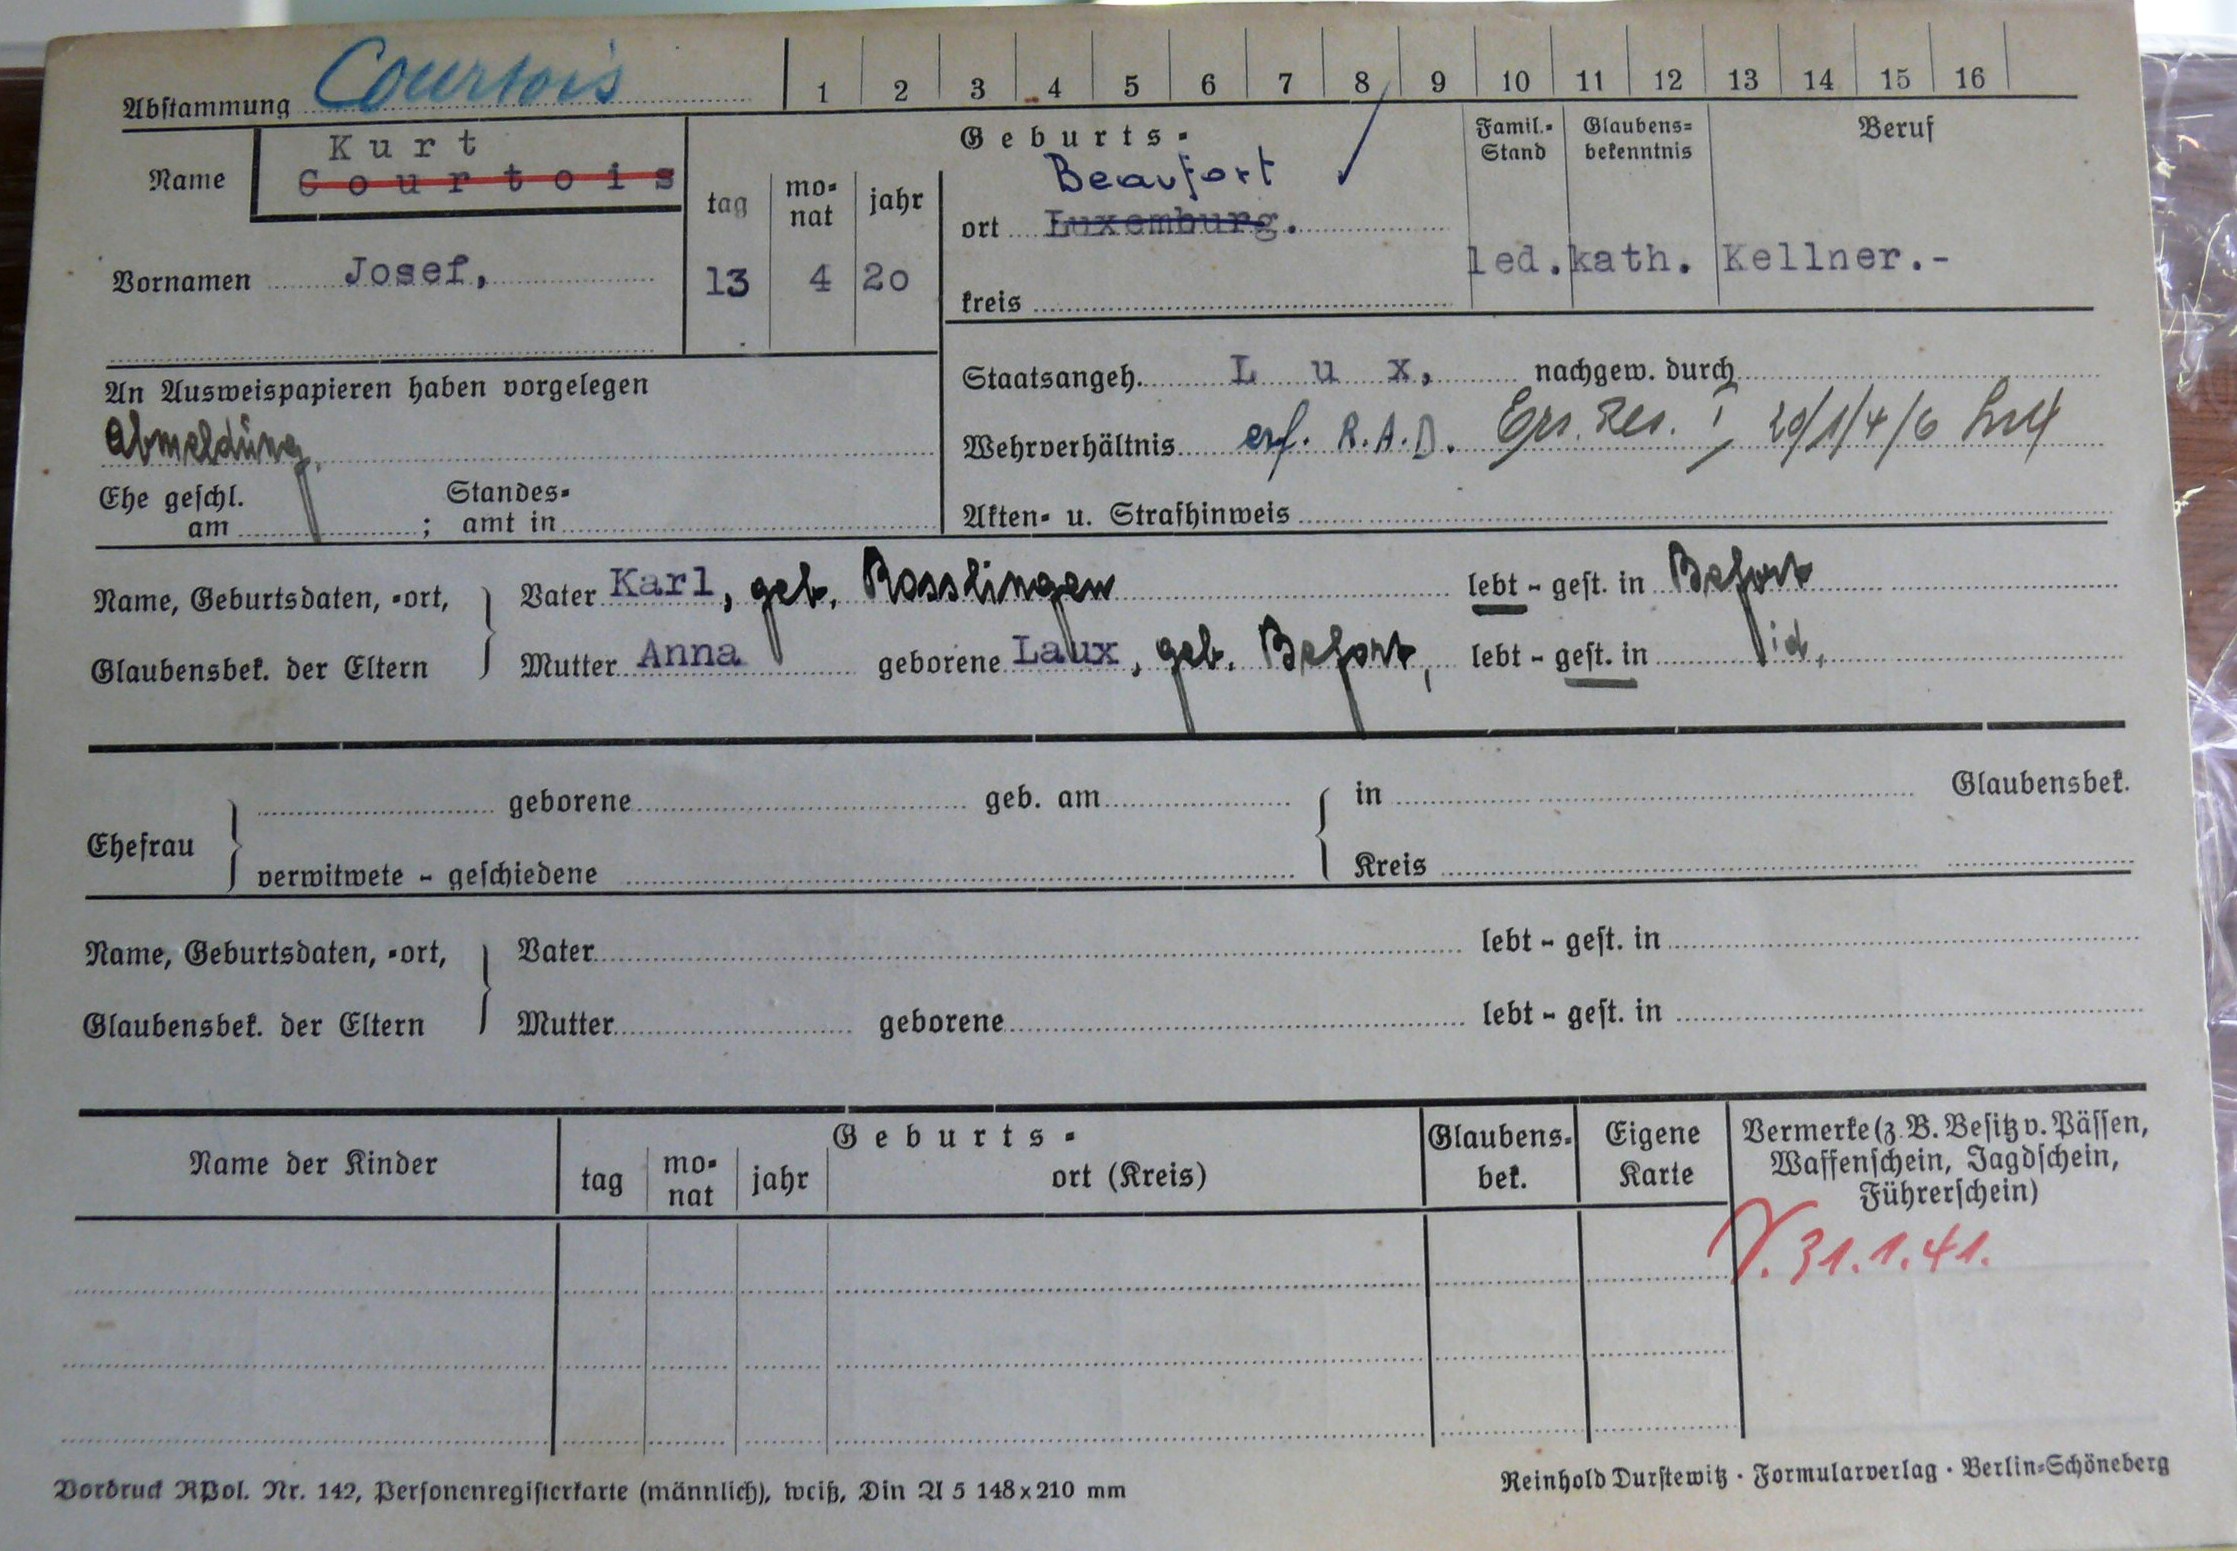 Abstammung Courtois
1 2 3 4 5 6 7 8 9 10 11 12 13 14 15 16
Name Kurt
Courtois
Vornamen Josef,
tag monat jahr
13 4 20
Geburts-
Beaufort
ort Luxemburg.
kreis
Famil.-Stand Glaubens-bekenntnis Beruf
led. kath. Kellner.-
An Ausweispapieren haben vorgelegen
Abmeldung,
Ehe geschl. am ; Standes-amt in
Staatsangeh. Lux, nachgew. durch
Wehrverhältnis erf. R.A.D. Ers. Res. I, 20/1/4/6
Akten- u. Strafhinweis
Name, Geburtsdaten, -ort, Vater Karl, geb. Rosslingen lebt - gest. in Befort
Glaubensbek. der Eltern Mutter Anna geborene Laux, geb. Befort, lebt - gest. in id.
geborene geb. am in Glaubensbek.
Ehefrau
verwitwete - geschiedene Kreis
Name, Geburtsdaten, -ort, Vater lebt - gest. in
Glaubensbek. der Eltern Mutter geborene lebt - gest. in
Name der Kinder
Geburts-
tag monat jahr ort (Kreis)
Glaubens-bek.
Eigene Karte
Vermerke (z. B. Besitz v. Pässen,
Waffenschein, Jagdschein,
Führerschein)
V. 31.1.41.
Vordruck RPol. Nr. 142, Personenregisterkarte (männlich), weiß, Din A 5 148x210 mm
Reinhold Durstewitz · Formularverlag · Berlin-Schöneberg